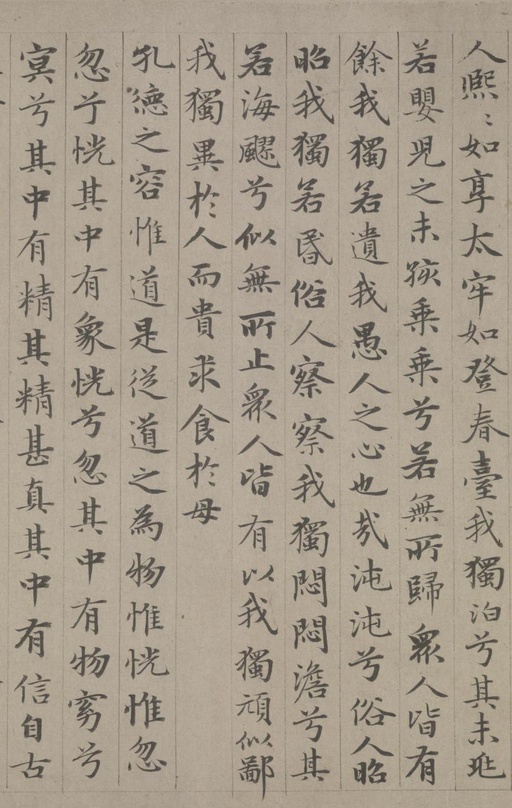 人熙〻如享太牢如登春臺我獨泊兮其未兆
若嬰児之未孩乗乗兮若無所歸衆人皆有
餘我獨若遺我愚人之心也哉沌沌兮俗人昭
昭我獨若昏俗人察察我獨悶悶澹兮其
若海飂兮似無所止衆人皆有以我獨頑似鄙
我獨異於人而貴求食於母
孔德之容惟道是従道之為物惟恍惟忽
忽兮恍其中有象恍兮忽其中有物窈兮
冥兮其中有精其精甚真其中有信自古